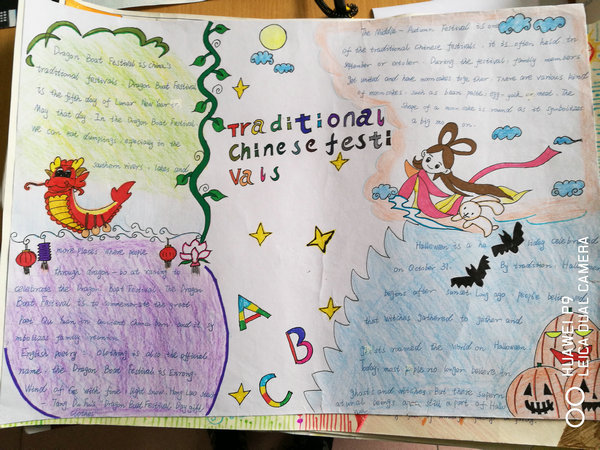 Dragon Boat Festival is china's
traditional festivals Dragon Boat Festival
Is the fifth day of Lunar New
May that day In the Dragon Boat Festival
We can eat dumplings, especially in the
southern rivers, lakes and
more places there people
through dragon-boat racing to
celebrate the Dragon Boat Festival The Dragon
Boat Festival is to commemorate the great
Poet Qu Yuan in ancient China and it
family reunion
English poetry: clothing is also the official
name, the Dragon Boat Festival is
Wind of Ge with fine light snow
Tang Du Fu's Dragon Boat Festival Day gift
clothes
Traditional
Chinese festi
vals
A
B
C
The Middle-Autumn Festival is one
of the traditional Chinese festivals. it is often held in
september or october. During the festival, family members
get united and have mooncakes together. There are various kinds
of mooncakes such as bean paste, egg-yolk or meat. The
shape of a mooncake is round as it symbolizes
a big moon.
Halloween is a holiday celebrated
on October 31. By tradition Halloween
begins after sunset Long ago people
that witches gathered together and
the World on Halloween
today most people no longer believe in
Ghosts and witches. But these
are still a part of
HUAWEI P9
LEICA DUAL CAMERA